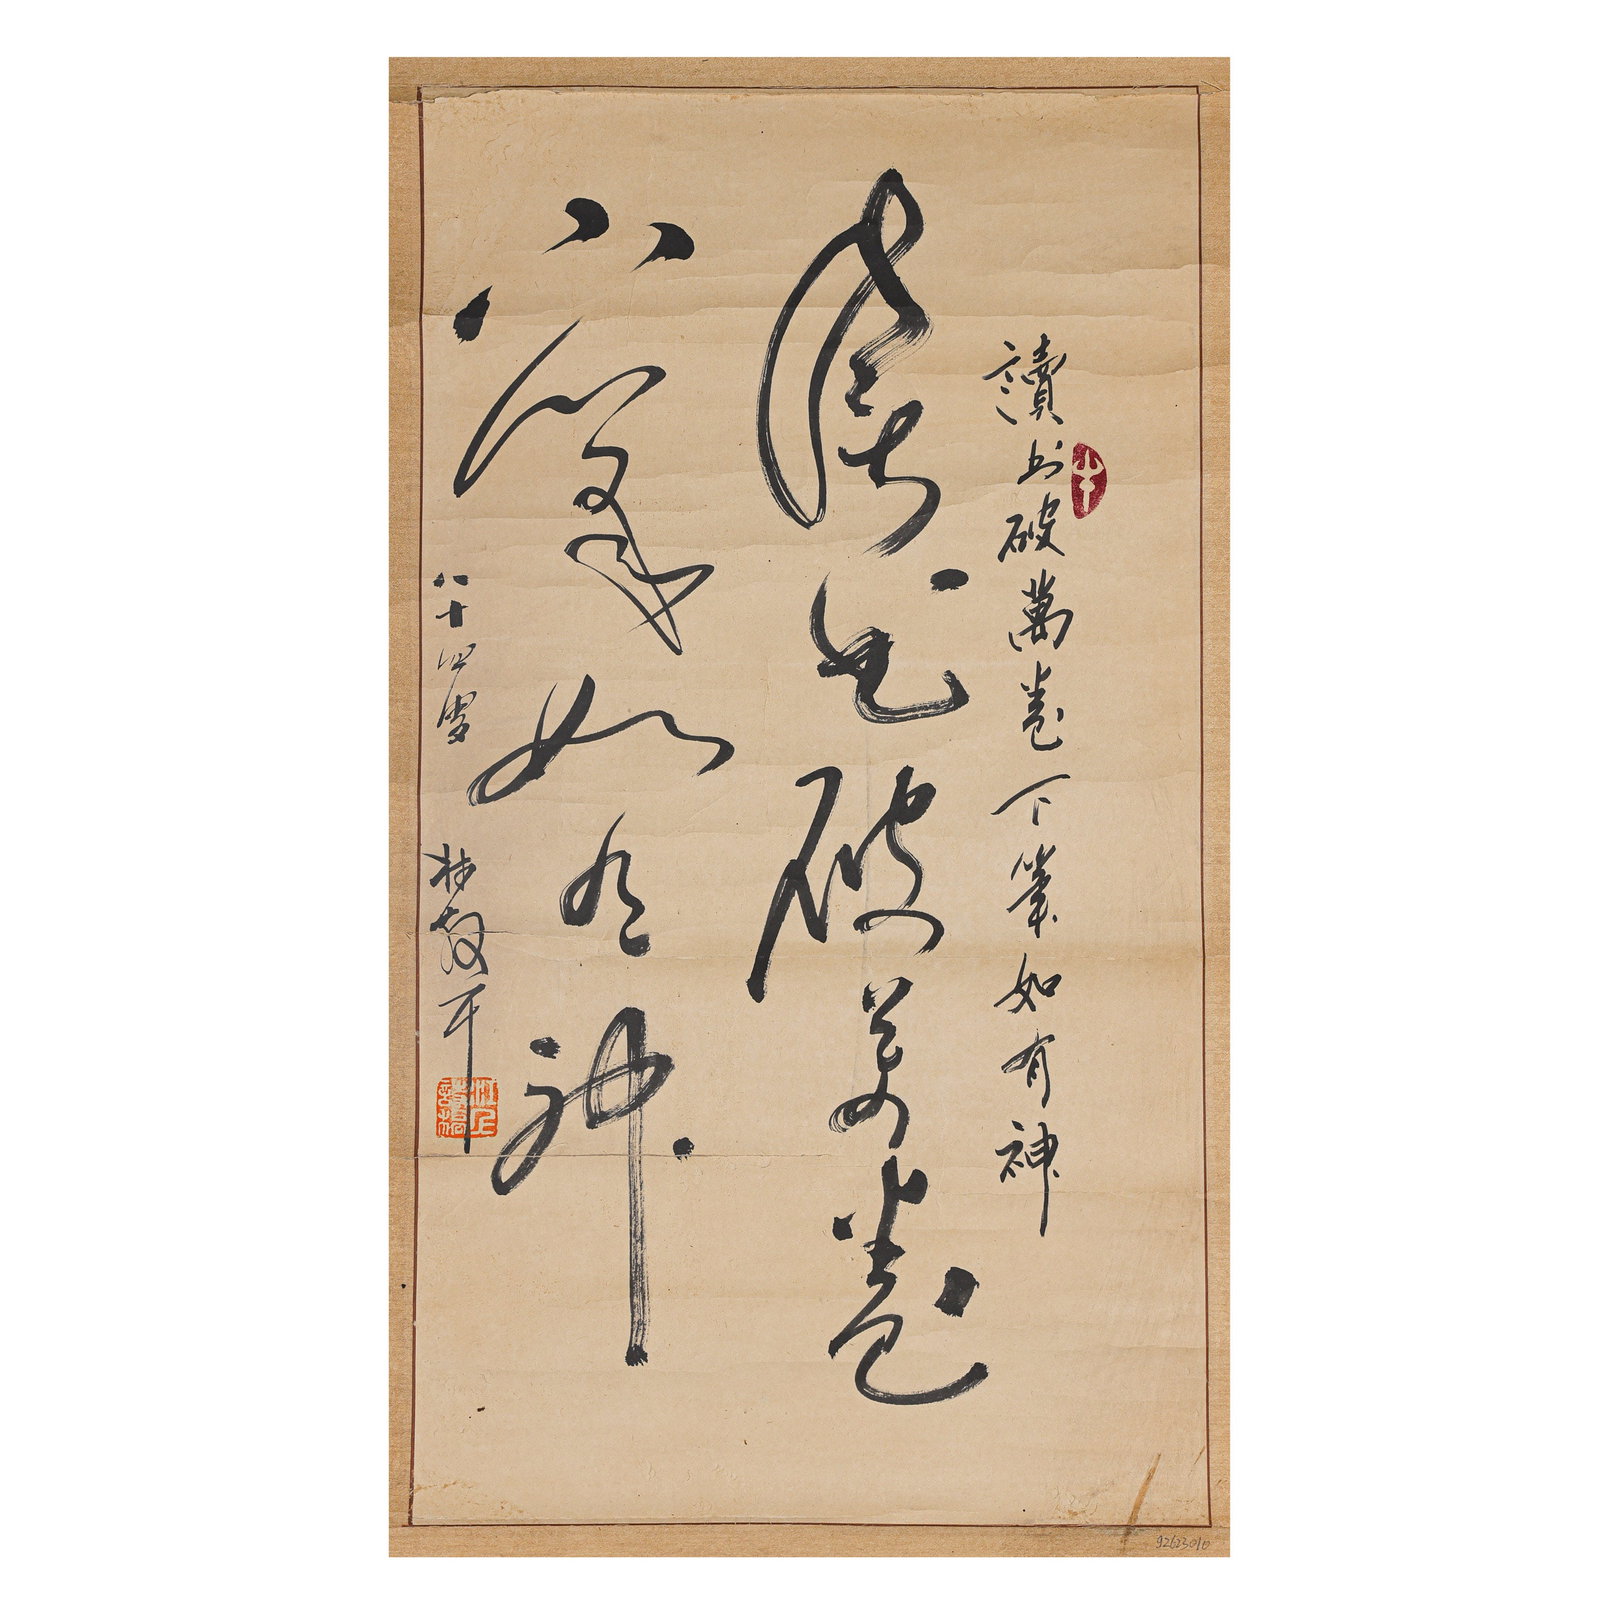 讀書破萬卷下筆如有神
讀書破萬卷
下筆如有神
八十四叟
林散耳
江上
92623010